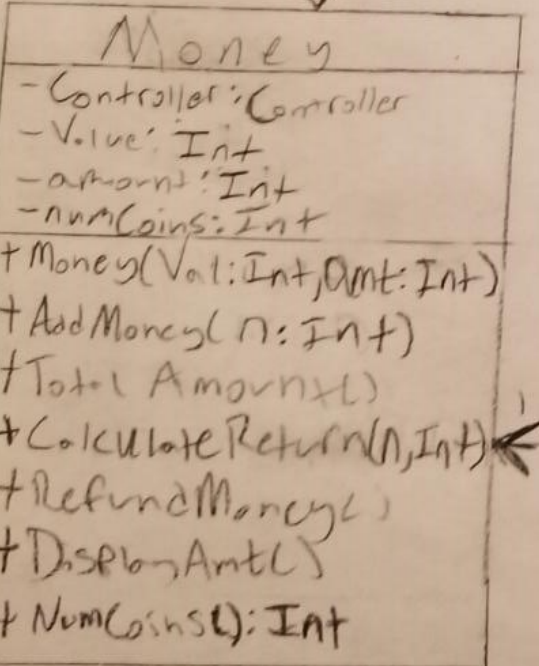 Money
-Controller:Controller
-Value: Int
-amount: Int
-numCoins: Int
+Money(Val:Int,amt:Int)
+AddMoney(n:Int)
+Total Amount()
+CalculateReturn(n,Int)
+RefundMoney()
+DisplayAmt()
+NumCoins():Int